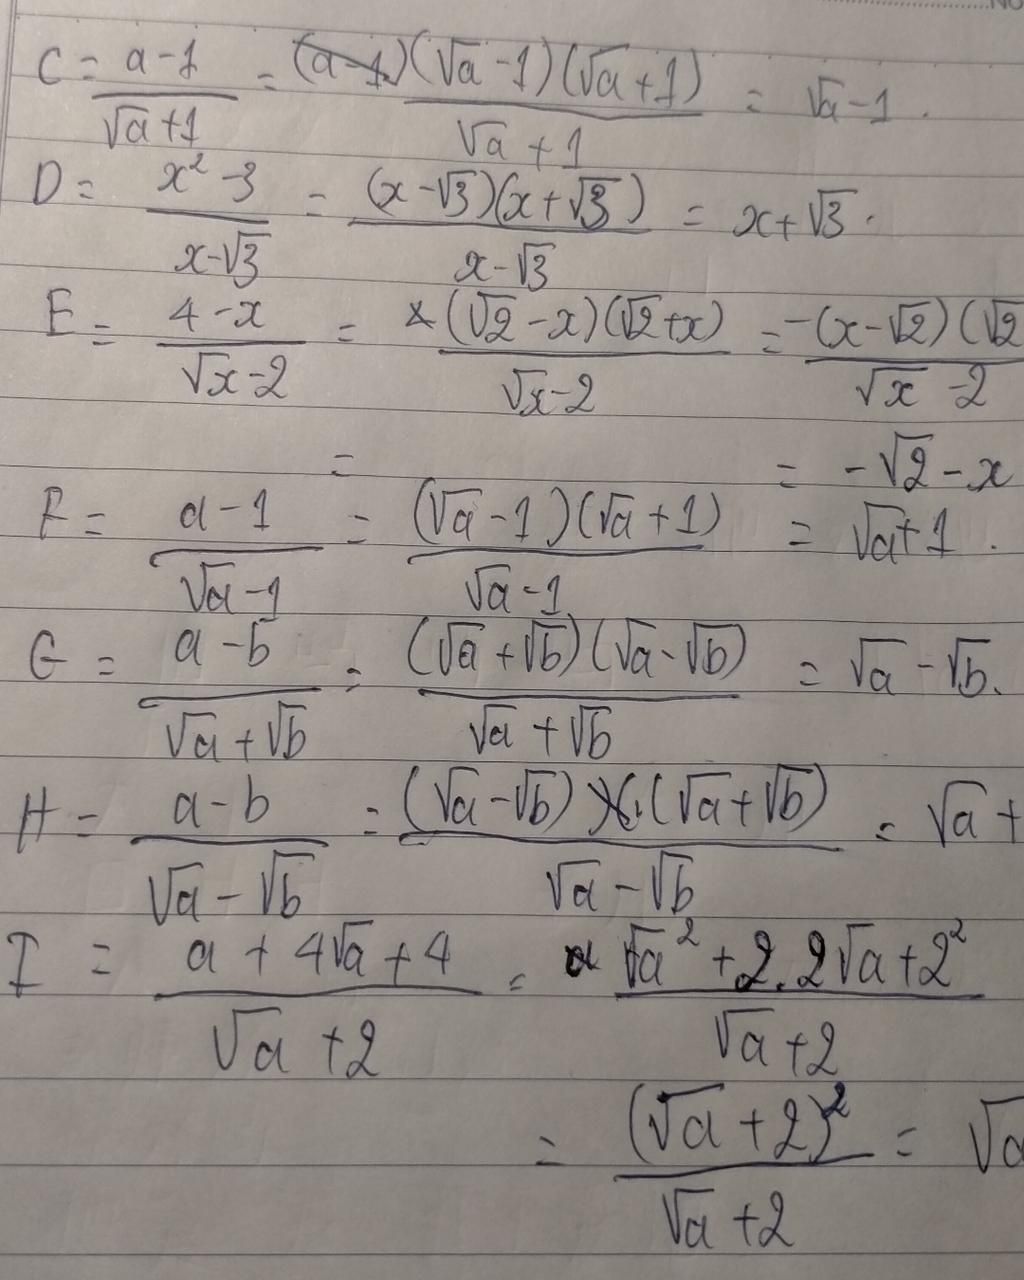 C = a-1 / √a+1 = (a-1)(√a-1)(√a+1) / √a+1 = √a-1.
D = x²-3 / x-√3 = (x-√3)(x+√3) / x-√3 = x+√3.
E = 4-x / √x-2 = (√2-x)(√2+x) / √x-2 = -(x-√2)(√2 / √x-2
= = -√2-x
F = a-1 / √a-1 = (√a-1)(√a+1) / √a-1 = √a+1.
G = a-b / √a+√b = (√a+√b)(√a-√b) / √a+√b = √a-√b.
H = a-b / √a-√b = (√a-√b).(√a+√b) / √a-√b = √a+
I = a+4√a+4 / √a+2 = √a²+2.2√a+2² / √a+2
= (√a+2)² / √a+2 = √a